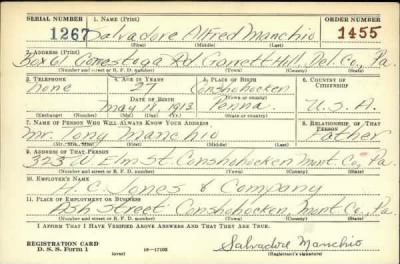 SERIAL NUMBER 1. NAME (Print) ORDER NUMBER
1267 Salvadore Alfred Manchio 1455
(First) (Middle) (Last)
2. ADDRESS (Print)
Box 61 Conestoga Rd. Garrett Hill, Del. Co., Pa.
(Number and street or R. F. D. number) (Town) (County) (State)
3. TELEPHONE 4. AGE IN YEARS 5. PLACE OF BIRTH 6. COUNTRY OF CITIZENSHIP
None 27 Conshohocken
DATE OF BIRTH (Town or county)
May 1913 Penna. U.S.A.
(Exchange) (No.) (Mo.) (Day) (Yr.) (State or country)
7. NAME OF PERSON WHO WILL ALWAYS KNOW YOUR ADDRESS 8. RELATIONSHIP OF THAT PERSON
Mr. Tony Manchio Father
(Mr., Mrs., Miss) (First) (Middle) (Last)
9. ADDRESS OF THAT PERSON
323 Elm St. Conshohocken Mont Co., Pa.
(Number and street or R. F. D. number) (Town) (County) (State)
10. EMPLOYER'S NAME
H. C. Jones & Company
11. PLACE OF EMPLOYMENT OR BUSINESS
Ash Street Conshohocken Mont Co., Pa.
(Number and street or R. F. D. number) (Town) (County) (State)
I AFFIRM THAT I HAVE VERIFIED ABOVE ANSWERS AND THAT THEY ARE TRUE.
REGISTRATION CARD
D. S. S. Form 1 16—17105 Salvadore Manchio
(Registrant's signature)